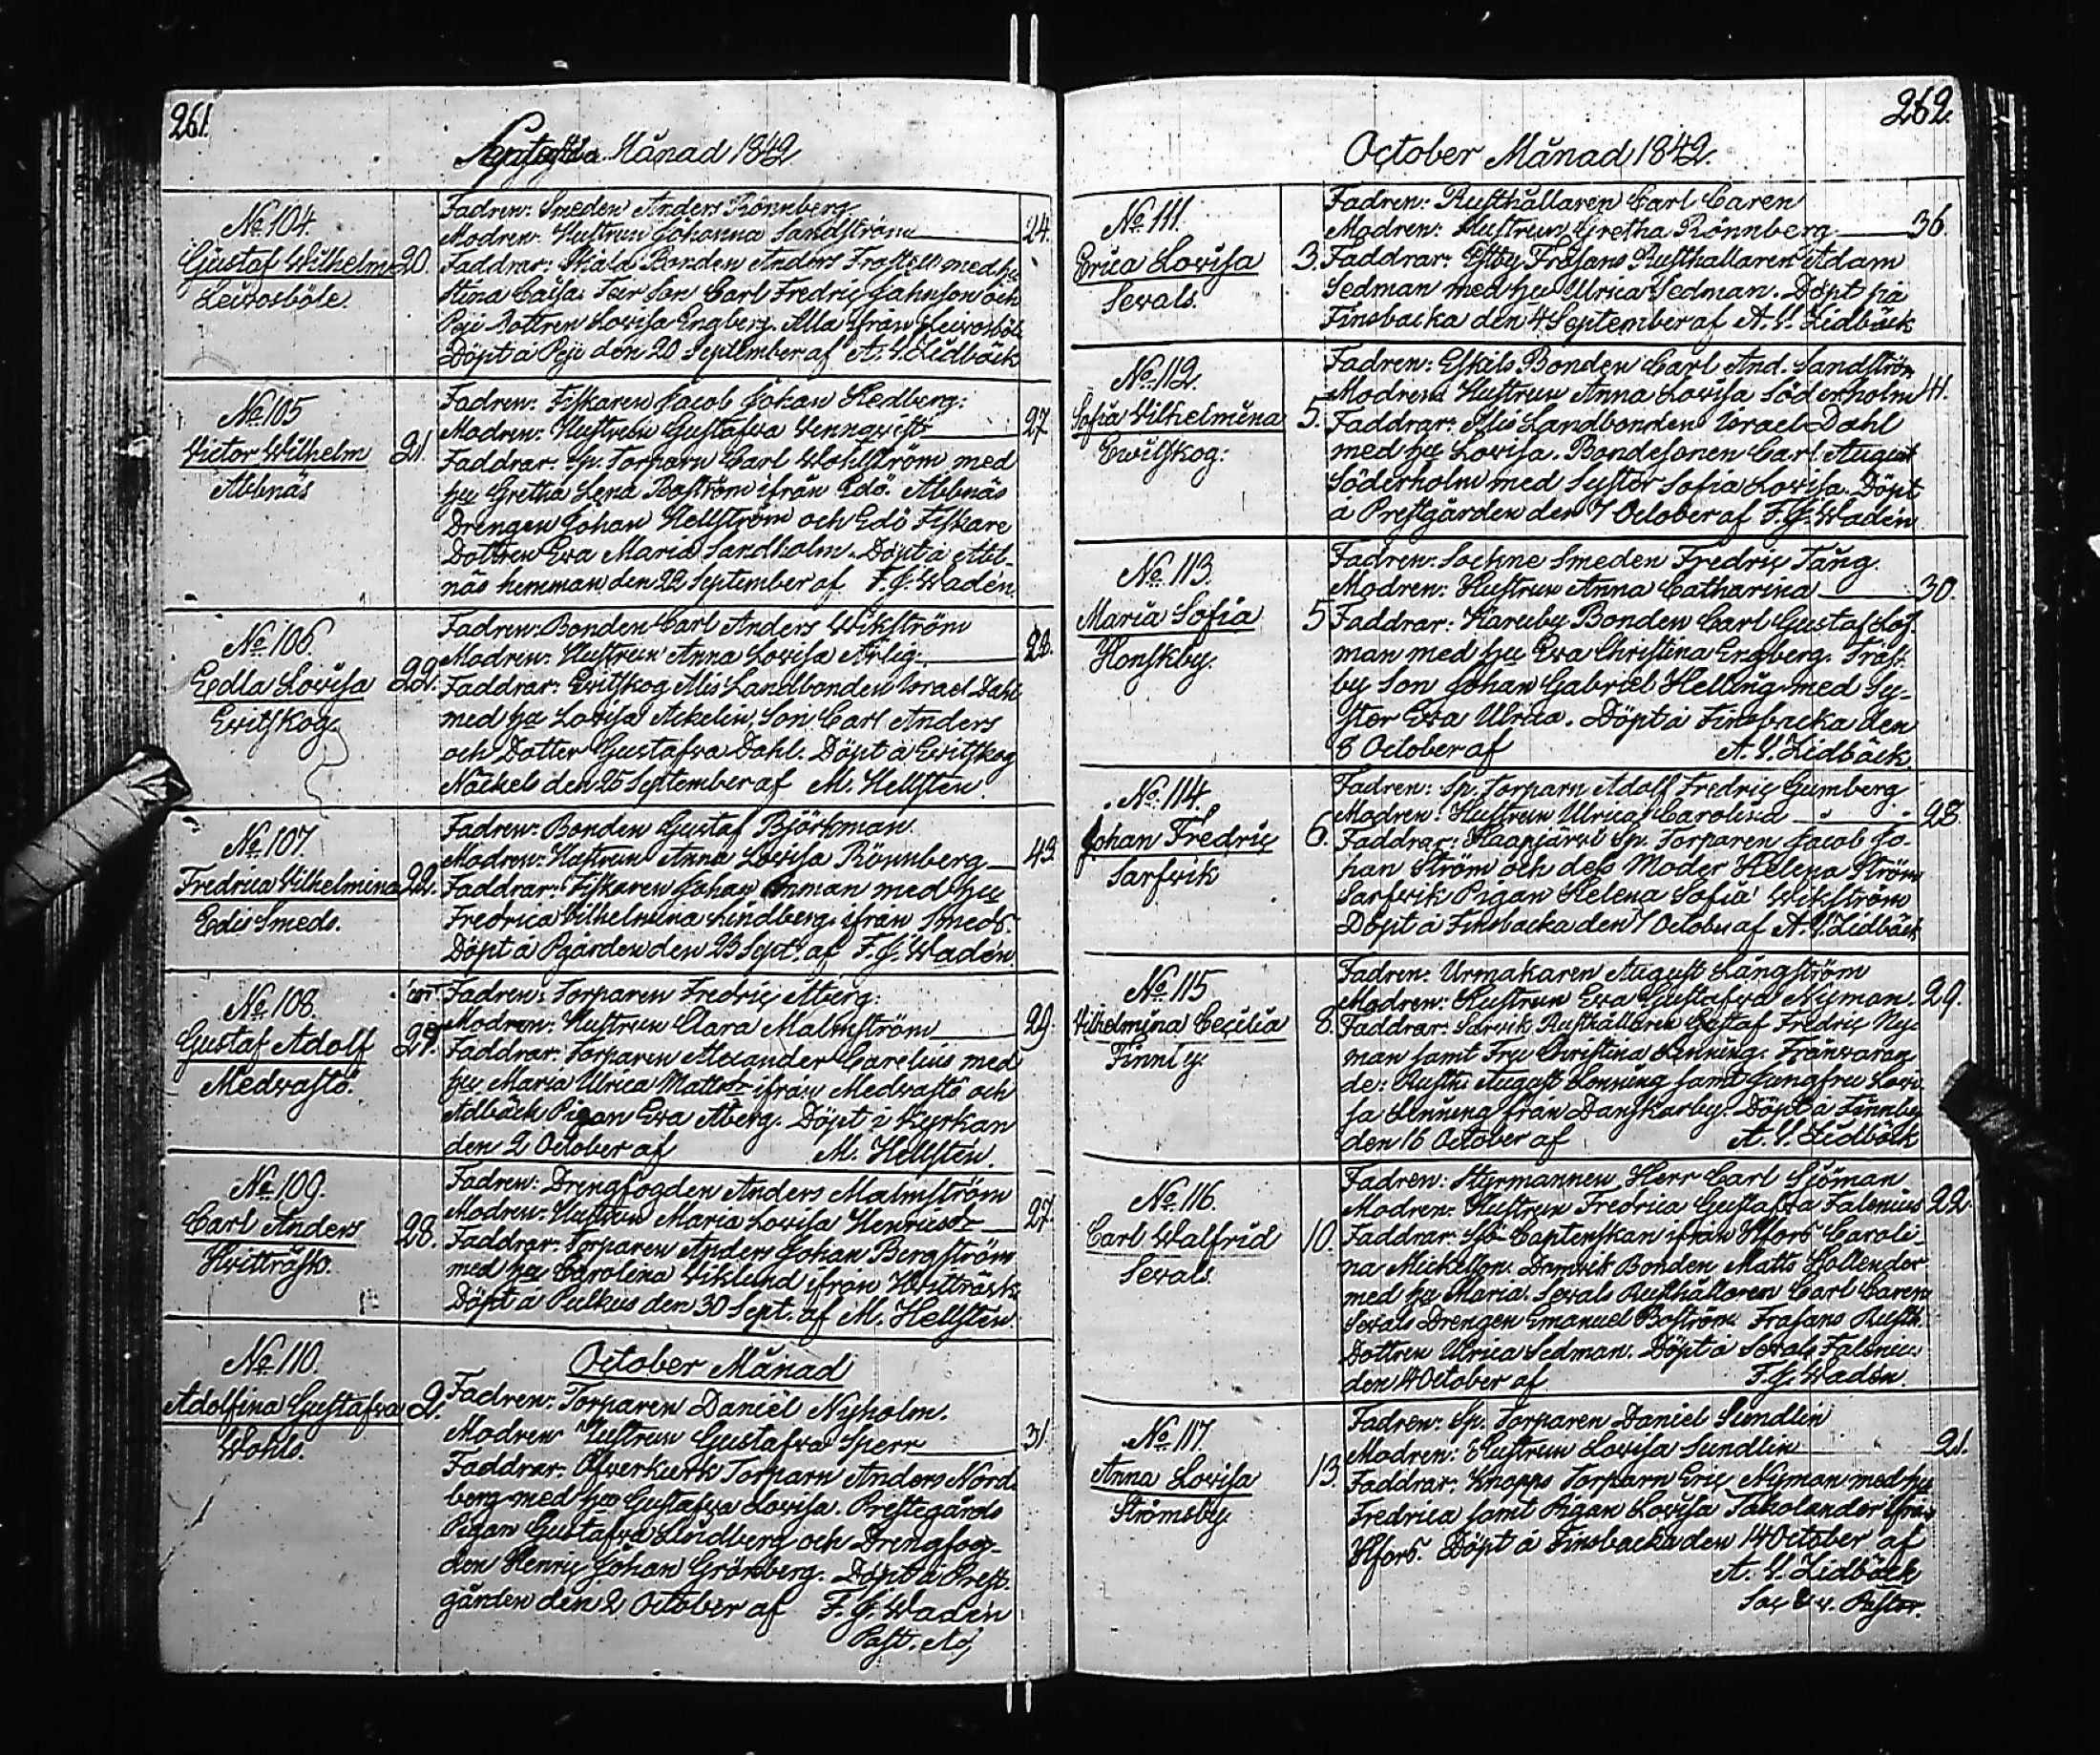 261.
Månad 1842
No. 104.
Gustaf Wilhelm 20.
Fadren: Smeden Anders Rönnberg
Modren: Hustrun Johanna Sandström 24.
Faddrar: Bonden Anders med hu
Stina Caisa. Son Carl Fredric Jahnson och
Dottren Lovisa Engberg. Alla ifrån
Döpt á den 20 September af A. V. Lidbäck
No. 105
Victor Wilhelm 21.
Abbnäs
Fadren: Fiskaren Jacob Johan Hedberg:
Modren: Hustrun Gustafva Vennqvist 27.
Faddrar: Sp. Torparn Carl Wohlström med
hu Gretha Lena Boström ifrån Edö. Abbnäs
Drengen Johan Hellström och Edö Fiskare
Dottren Eva Maria Sandholm. Döpt á Abb-
näs hemman den 22 September af F. J. Wadén.
No. 106.
Edla Lovisa 22.
Evitskog.
Fadren: Bonden Carl Anders Wikström
Modren: Hustrun Anna Lovisa Arlig 28.
Faddrar: Evitskog Alis Landbonden Israel Dahl
med hu Lovisa Ackelin, Son Carl Anders
och Dotter Gustafva Dahl. Döpt á Evitskog
Näckels den 25 September af M. Hellstén.
No. 107.
Fredrica Vilhelmina 22.
Edis Smeds.
Fadren: Bonden Gustaf Björkman.
Modren: Hustrun Anna Lovisa Rönnberg 43.
Faddrar: Fiskaren Johan med hu
Fredrica Vilhelmina Lindberg ifrån Smeds.
Döpt á Pgården den 25 Sept. af F. J. Wadén.
No. 108.
Gustaf Adolf 27.
Medvastö.
Fadren: Torparen Fredric Åberg:
Modren: Hustrun Clara Malmström 29.
Faddrar: Torparen Alexander Carelius med
hu Maria Ulrica ifrån Medvastö och
Adbäck Pigan Eva Åberg. Döpt i Kyrkan
den 2 October af M. Hellstén.
No. 109.
Carl Anders 28.
Hvitträsk.
Fadren: Drengfogden Anders Malmström
Modren: Hustrun Maria Lovisa 27.
Faddrar: Torparen Anders Johan Bergström
med hu Carolina Wiklund ifrån Hvitträsk.
Döpt á den 30 Sept. af M. Hellstén
No. 110.
Adolfina Gustafva 2.
Wohls.
October Månad
Fadren: Torparen Daniel Nyholm.
Modren Hustrun Gustafva Sperr 31.
Faddrar: Öfverkurk Torparn Anders Nord-
berg med hu Gustafva Lovisa. Prestegårds
Pigan Gustafva Lindberg och Drengfog-
den Henric Johan Grönberg. Döpt á Prest-
gården den 2 October af F. J. Wadén
Past. Adj
262.
October Månad 1842.
No. 111.
Erica Lovisa 3.
Sevals.
Fadren: Rusthållaren Carl Caren
Modren: Hustrun Gretha Rönnberg 36.
Faddrar: Estby Frasans Rusthållaren Adam
Sedman med hu Ulrica Sedman. Döpt på
Finsbacka den 4 September af A. V. Lidbäck
No. 112.
Sofia Vilhelmina 5.
Evitskog:
Fadren: Eskils Bonden Carl And. Sandström
Modren: Hustrun Anna Lovisa Söderholm 41.
Faddrar: Alis Landbonden Israel Dahl
med hu Lovisa. Bondesonen Carl August
Söderholm med Syster Sofia Lovisa. Döpt
á Prestgården den 7 October af F. J. Wadén
No. 113.
Maria Sofia 5
Honskby.
Fadren: Sockne Smeden Fredric Tång.
Modren: Hustrun Anna Catharina 30.
Faddrar: Karuby Bonden Carl Gustaf Löf-
man med hu Eva Christina Engberg. Träsk-
by Son Johan Gabriel Helling med Sy-
ster Eva Ulrica. Döpt á Finsbacka den
8 October af A. V. Lidbäck.
No. 114.
Johan Fredric 6.
Sarfvik
Fadren: Sp. Torparn Adolf Fredric Gumberg.
Modren: Hustrun Ulrica Carolina 28.
Faddrar: Haapjärvi Sp. Torparen Jacob Jo-
han Ström och dess Moder Helena Ström
Sarfvik Pigan Helena Sofia Wikström
Döpt á Finsbacka den 7 October af A. V. Lidbäck
No. 115
Vilhelmina Cecilia 8.
Finnby.
Fadren: Urmakaren August Långström
Modren: Hustrun Eva Gustafva Nyman. 29.
Faddrar: Sarvik Rusthållaren Gustaf Fredric Ny-
man samt Fru Christina Lönning. Frånvaran-
de: Rusth. August Lönning samt Jungfru Lovi-
sa Lönning från Danskarby. Döpt á Finnby
den 16 October af A. V. Lidbäck
No. 116.
Carl Walfrid 10.
Sevals.
Fadren: Styrmannen Herr Carl Sjöman
Modren: Hustrun Fredrica Gustafva Falenius 22.
Faddrar: Sjö Captenskan ifrån Hfors Caroli-
na Mickelson. Damvik Bonden Matts Hollender
med hu Maria. Sevals Rusthållaren Carl Caren,
Sevals Drengen Emanuel Boström. Frasans Rusth.
Dottren Ulrica Sedman. Döpt á Sevals Falenius
den 14 October af F. J. Wadén.
No. 117.
Anna Lovisa 13.
Strömsby.
Fadren: Sp. Torparen Daniel Sundlin
Modren: Hustrun Lovisa Sundlin 21.
Faddrar: Knapps Torparn Eric Nyman med hu
Fredrica samt Pigan Lovisa Takolander ifrån
Hfors. Döpt á Finsbacka den 14 October af
A. V. Lidbäck
Soc & v. Pastor.